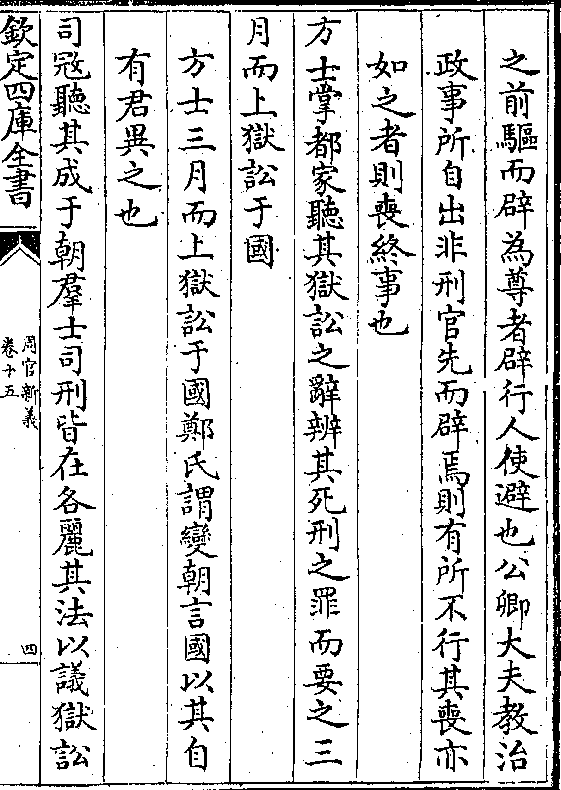 之前驅而辟為尊者辟行人使避也公卿大夫教治
政事所自出非刑官先而辟焉則有所不行其喪亦
如之者則喪終事也
方士掌都家聽其獄訟之辭辨其死刑之罪而要之三
月而上獄訟于國
方士三月而上獄訟于國鄭氏謂變朝言國以其自
有君異之也
司宼聽其成于朝羣士司刑皆在各麗其法以議獄訟
欽定四庫全書
周官新義
卷十五
四